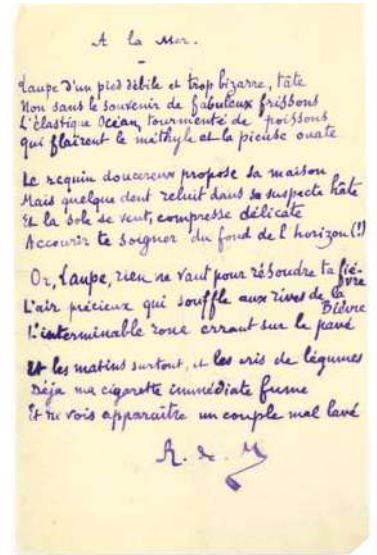 A la Mer.
Laupe d'un pied débile et trop bizarre, tâte
Non sans le souvenir de fabuleux frissons
L'élastique Océan, tourmenté de poissons
Qui flairent le méthyle et la pieuse ouate
Le requin doucereux propose sa maison
Mais quelque dent reluit dans sa suspecte hâte
Et la sole se veut, compresse délicate
Accourir te soigner du fond de l'horizon (!)
Or, Laupe, rien ne vaut pour résoudre ta fièvre
L'air précieux qui souffle aux rives de la Bièvre
L'interminable roue errant sur le pavé
Et les matins surtout, et les cris de légumes
Déjà ma cigarette immédiate fume
Et tu vois apparaître un couple mal lavé
A. de M